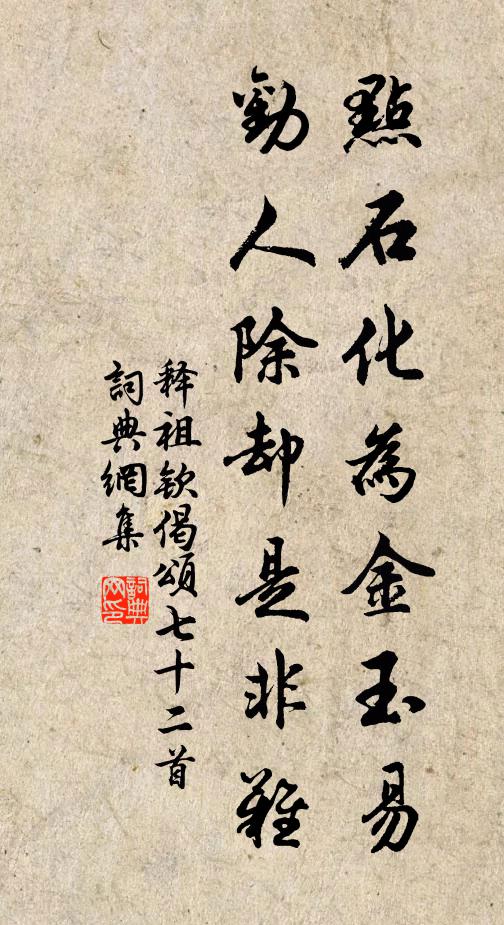 點石化為金玉易
勸人除却是非難
释祖欽偈頌七十二首
詞典網集
詞典網印